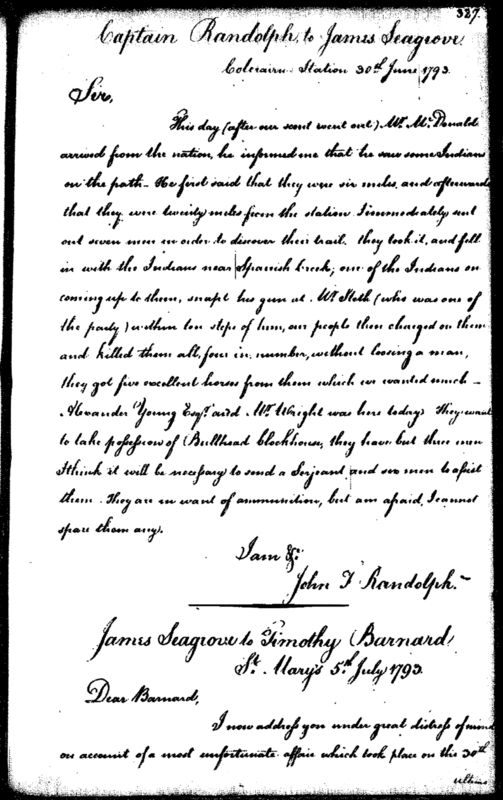 327.
Captain Randolph, to James Seagrove
Colerain Station 30th June 1793.
Sir,
This day (after our scout went out) Mr. McDonald
arrived from the nation, he informed me that he saw some Indians
on the path – He first said that they were six miles, and afterwards
that they were twenty miles from the station I immediately sent
out seven men in order to discover their trail. they took it, and fell
in with the Indians near Spanish Creek; one of the Indians on
coming up to them, snapt his gun at Mr. Stoth (who was one of
the party) within ten steps of him, our people then charged on them
and killed them all, four in number, without loosing a man,
they got five excellent horses from them which we wanted much –
Alexander Young Esqr. and Mr. Wright was here today They want
to take possession of Bullhead blockhouse, they have but three men
I think it will be necessary to send a Serjeant and six men to assist
them. They are in want of ammunition, but am afraid, I cannot
spare them any.
I am &c:
John F Randolph. –
James Seagrove to Timothy Barnard
St. Mary's 5th July 1793.
Dear Barnard,
I now address you under great distress of mind
on account of a most unfortunate affair which took place on the 30th
ultimo